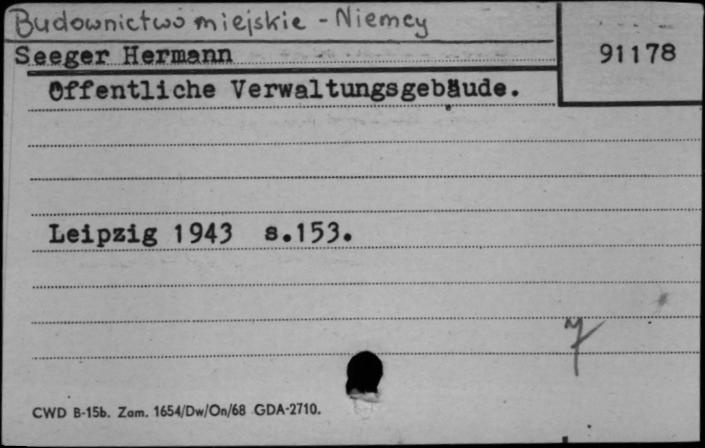 Budownictwo miejskie - Niemcy
Seeger Hermann
91178
Öffentliche Verwaltungsgebäude.
Leipzig 1943 s.153.
CWD B-15b. Zam. 1654/Dw/On/68 GDA-2710.